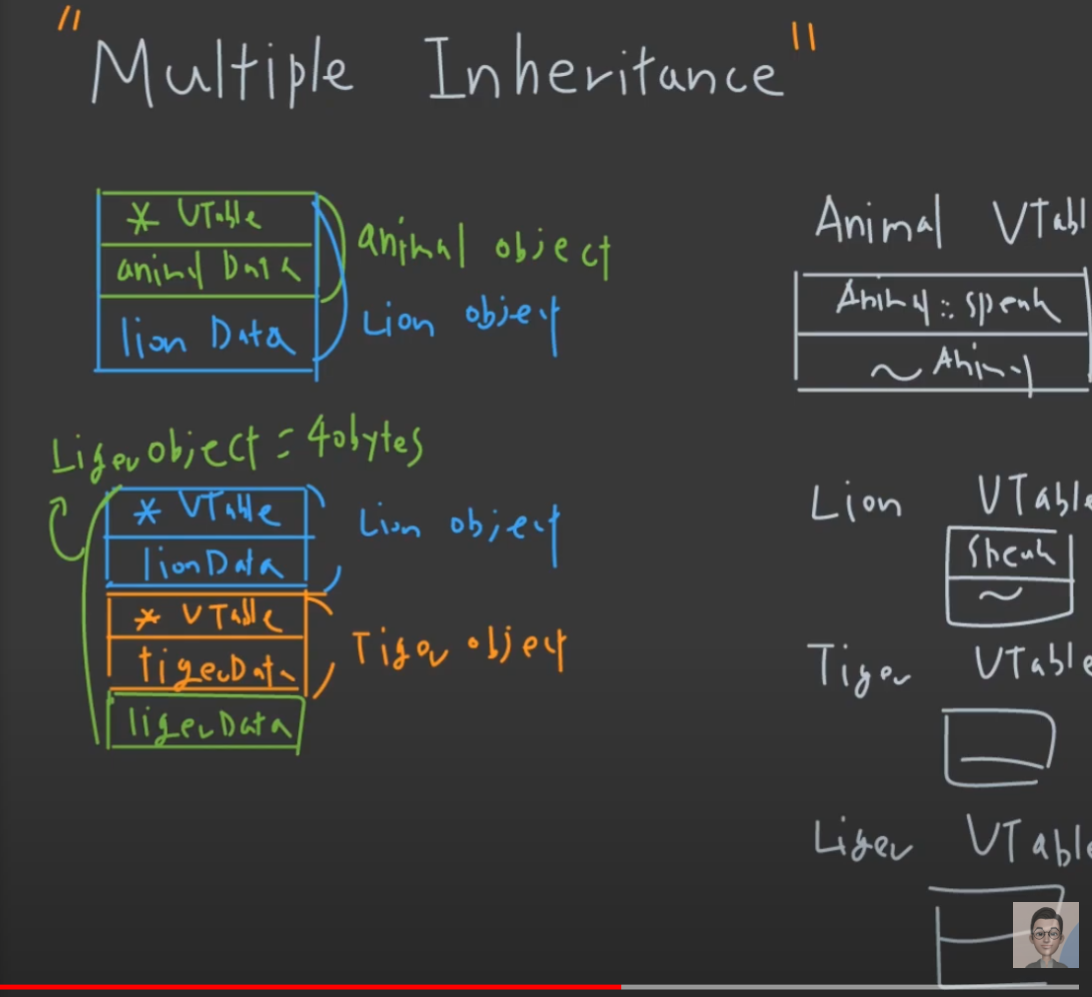 "Multiple Inheritance"
* VTable
animal Data
lion Data
animal object
Lion object
Liger object = 40bytes
* VTable
lionData
Lion object
* VTable
tigerData
Tiger object
ligerData
Animal VTabl
Animal::speak
~Animal
Lion VTable
Speak
~
Tiger VTable
Liger VTable